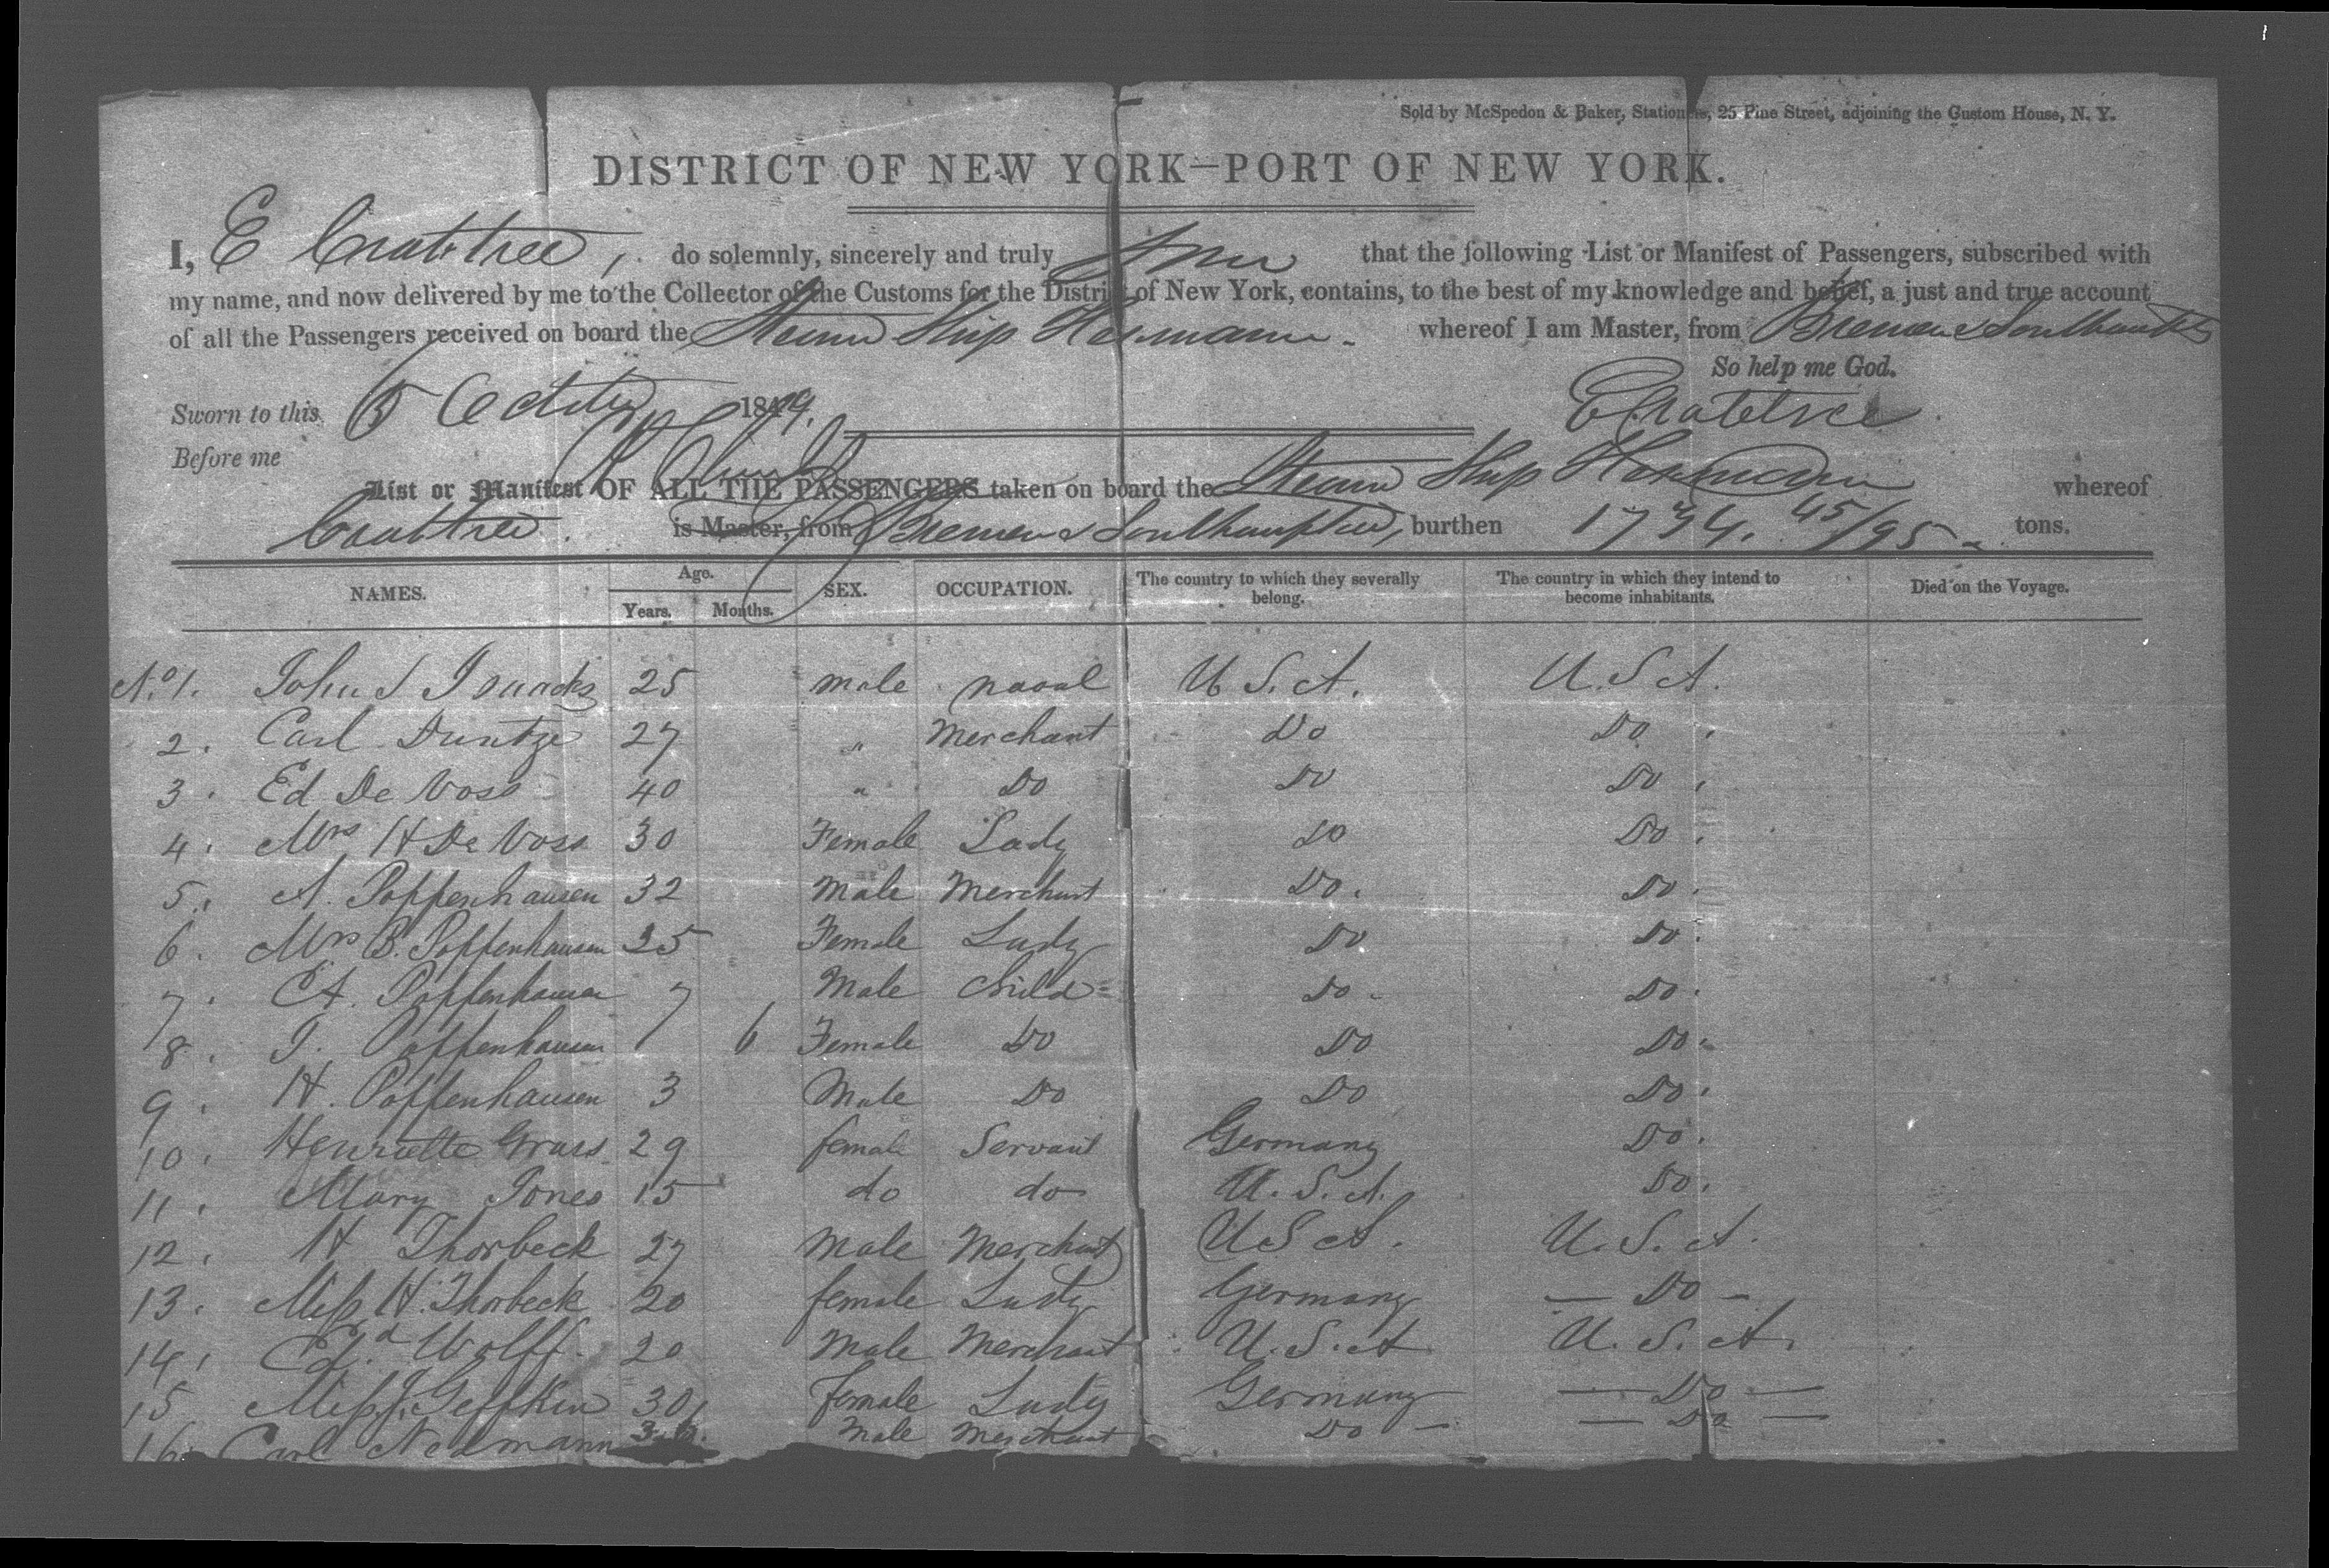 Sold by McSpedon & Baker, Stationers, 25 Pine Street, adjoining the Custom House, N. Y.
DISTRICT OF NEW YORK—PORT OF NEW YORK.
I, E Crabtree, do solemnly, sincerely and truly that the following List or Manifest of Passengers, subscribed with
my name, and now delivered by me to the Collector of the Customs for the District of New York, contains, to the best of my knowledge and belief, a just and true account
of all the Passengers received on board the Steam Ship Hermann. whereof I am Master, from Bremen & Southampton
So help me God.
Sworn to this 1849. E Crabtree
Before me
List or Manifest OF ALL THE PASSENGERS taken on board the Steam Ship Hermann whereof
Crabtree. is Master, from Bremen & Southampton, burthen 1734. 45/95 tons.
NAMES. Age. Years. Months. SEX. OCCUPATION. The country to which they severally belong. The country in which they intend to become inhabitants. Died on the Voyage.
No. 1. John S 25 male naval U.S.A. U.S.A.
2. Carl Duntze 27 " Merchant Do Do
3. Ed De Voss 40 " Do Do Do
4. Mrs H De Voss 30 Female Lady Do Do
5. A. Poppenhausen 32 Male Merchant Do. Do.
6. Mrs B. Poppenhausen 25 Female Lady Do Do.
7. Poppenhausen 7 Male Child Do Do.
8. Poppenhausen 6 Female Do Do Do.
9. H. Poppenhausen 3 Male Do Do Do.
10. Henriette 29 female Servant Germany Do.
11. Mary Jones 15 do do U.S.A. Do.
12. H Thorbeck 27 Male Merchant U S A. U.S.A.
13. Miss H. Thorbeck 20 female Lady Germany — Do —
14. Ed. Wolff. 20 Male Merchant U.S.A U.S.A.
15 Miss J. Geffken 30 female Lady Germany — Do —
16 Carl Male Merchant Do — — Do —